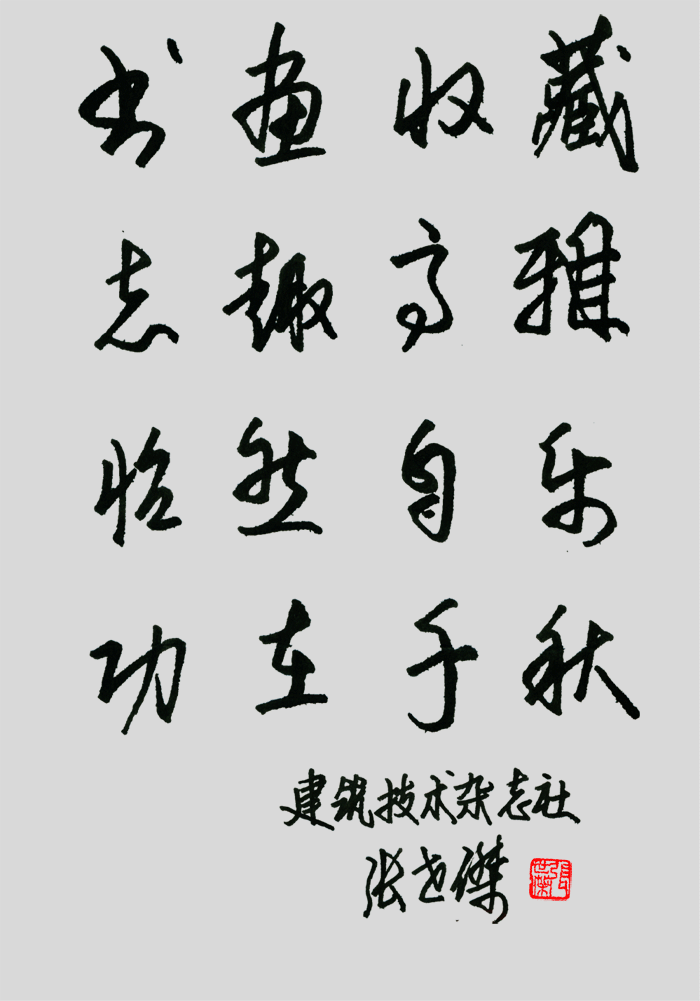 书画收藏
志趣高雅
怡然自乐
功在千秋
建筑技术杂志社
张世杰